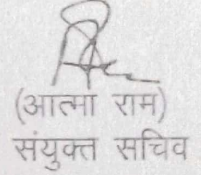 (आत्मा राम)
संयुक्त सचिव